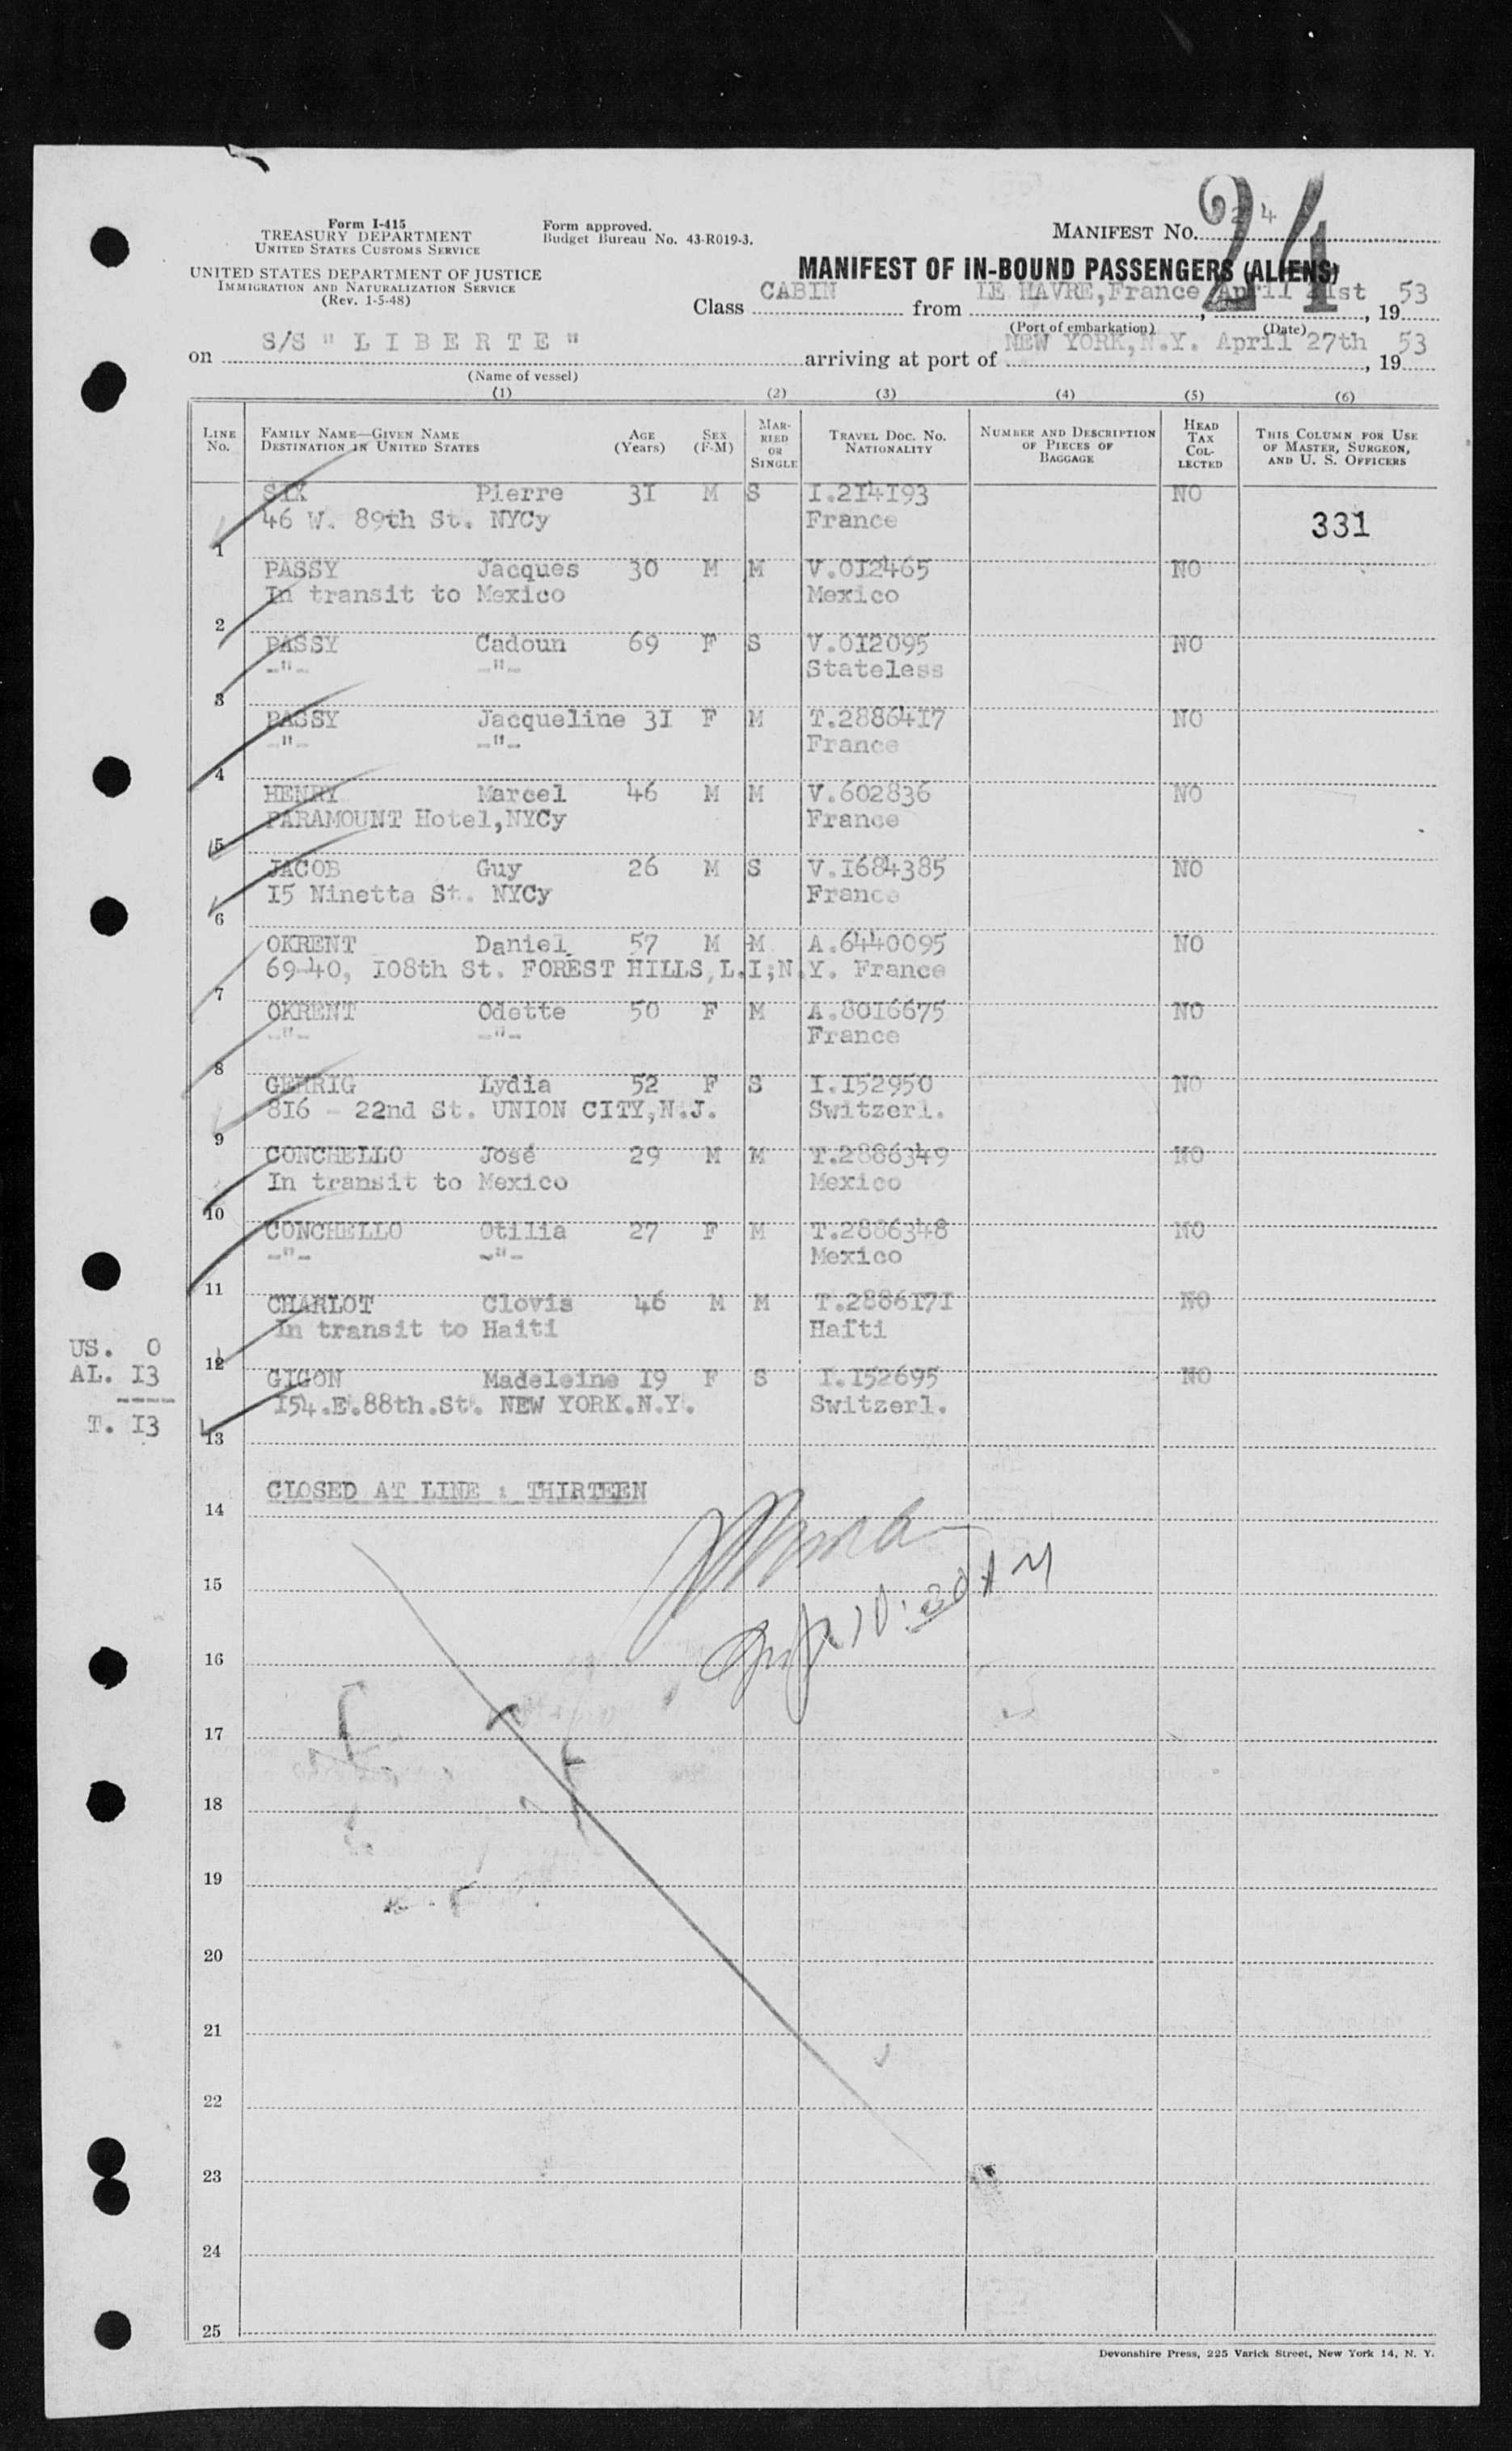 24
Form I-415
TREASURY DEPARTMENT
UNITED STATES CUSTOMS SERVICE
Form approved.
Budget Bureau No. 43-R019-3.
MANIFEST No. 24
UNITED STATES DEPARTMENT OF JUSTICE
IMMIGRATION AND NATURALIZATION SERVICE
(Rev. 1-5-48)
MANIFEST OF IN-BOUND PASSENGERS (ALIENS)
Class CABIN from LE HAVRE, France, April 21st, 1953
(Port of embarkation) (Date)
on S/S " L I B E R T E " arriving at port of NEW YORK, N.Y. April 27th, 1953
(Name of vessel)
(1) (2) (3) (4) (5) (6)
LINE No. FAMILY NAME—GIVEN NAME DESTINATION IN UNITED STATES AGE (Years) SEX (F-M) MARRIED OR SINGLE TRAVEL DOC. NO. NATIONALITY NUMBER AND DESCRIPTION OF PIECES OF BAGGAGE HEAD TAX COLLECTED THIS COLUMN FOR USE OF MASTER, SURGEON, AND U. S. OFFICERS
SIX Pierre 3I M S I.2I4I93 NO
46 W. 89th St. NYCy France 331
1
PASSY Jacques 30 M M V.0I2465 NO
In transit to Mexico Mexico
2
PASSY Cadoun 69 F S V.0I2095 NO
-"- -"- Stateless
3
PASSY Jacqueline 3I F M T.28864I7 NO
-"- -"- France
4
HENRY Marcel 46 M M V.602836 NO
PARAMOUNT Hotel,NYCy France
5
JACOB Guy 26 M S V.I684385 NO
I5 Ninetta St. NYCy France
6
OKRENT Daniel 57 M M A.6440095 NO
69-40, I08th St. FOREST HILLS,L.I;N.Y. France
7
OKRENT Odette 50 F M A.80I6675 NO
-"- -"- France
8
GEHRIG Lydia 52 F S I.I52950 NO
8I6 - 22nd St. UNION CITY,N.J. Switzerl.
9
CONCHELLO José 29 M M T.2886349 NO
In transit to Mexico Mexico
10
CONCHELLO Otilia 27 F M T.2886348 NO
-"- -"- Mexico
11
CHARLOT Clovis 46 M M T.2886I7I NO
In transit to Haïti Haïti
12
GIGON Madeleine I9 F S I.I52695 NO
I54.E.88th.St. NEW YORK.N.Y. Switzerl.
13
US. 0
AL. I3
----
T. I3
CLOSED AT LINE : THIRTEEN
14
15
16
17
18
19
20
21
22
23
24
25
Devonshire Press, 225 Varick Street, New York 14, N. Y.